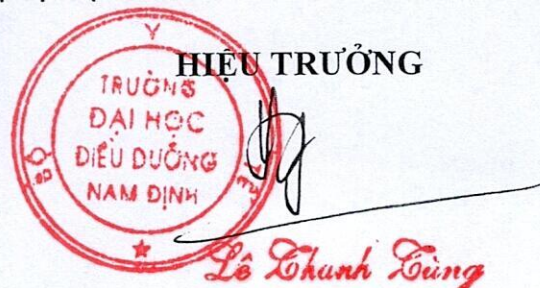 HIỆU TRƯỞNG
BỘ Y TẾ
TRƯỜNG
ĐẠI HỌC
ĐIỀU DƯỠNG
NAM ĐỊNH
Lê Thanh Tùng